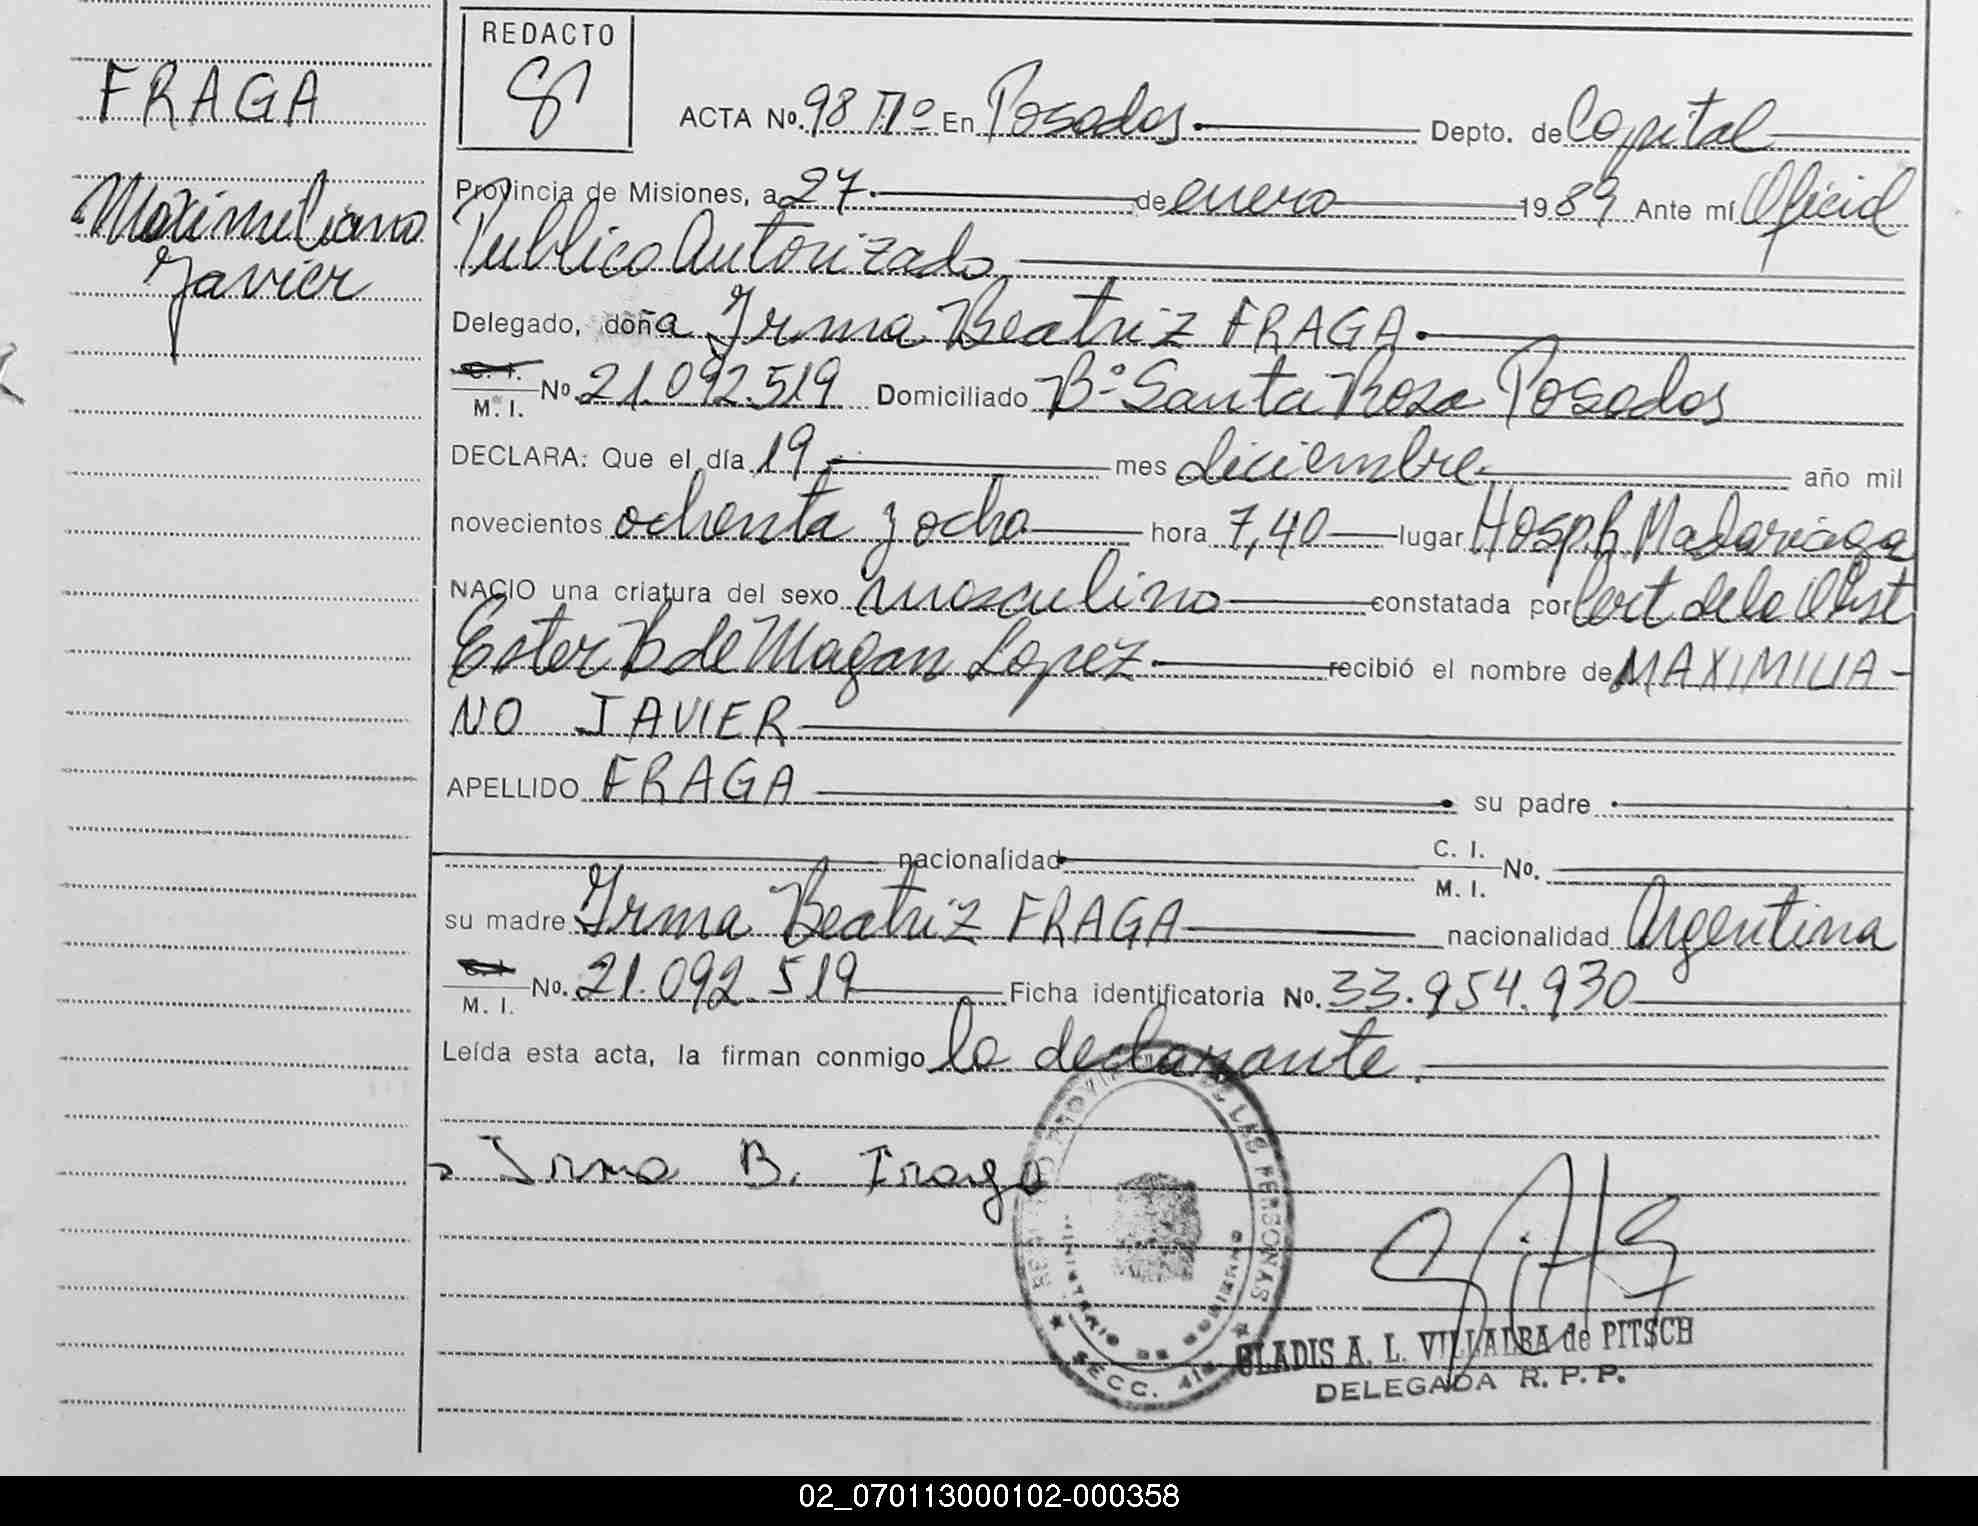 FRAGA
Maximiliano
Javier
REDACTO
ACTA No. 98 Tº En Posadas Depto. de Capital
Provincia de Misiones, a 27 de enero 1989 Ante mí Oficial
Publico Autorizado
Delegado, doña Irma Beatriz FRAGA
C. I.
M. I. No. 21.092.519 Domiciliado Bº Santa Rosa Posadas
DECLARA: Que el día 19 mes diciembre año mil
novecientos ochenta y ocho hora 7,40 lugar Hosp. R Madariaga
NACIO una criatura del sexo masculino constatada por Cert de la Obst
Ester B de Magan Lopez recibió el nombre de MAXIMILIA-
NO JAVIER
APELLIDO FRAGA su padre
nacionalidad C. I.
M. I. No.
su madre Irma Beatriz FRAGA nacionalidad Argentina
C. I.
M. I. No. 21.092.519 Ficha identificatoria No. 33.954.930
Leída esta acta, la firman conmigo la declarante.
Irma B. Fraga
DE LAS PERSONAS
MINISTERIO DE GOBIERNO
SECC. 4ta
GLADIS A. L. VILLALBA de PITSCH
DELEGADA R. P. P.
02_070113000102-000358